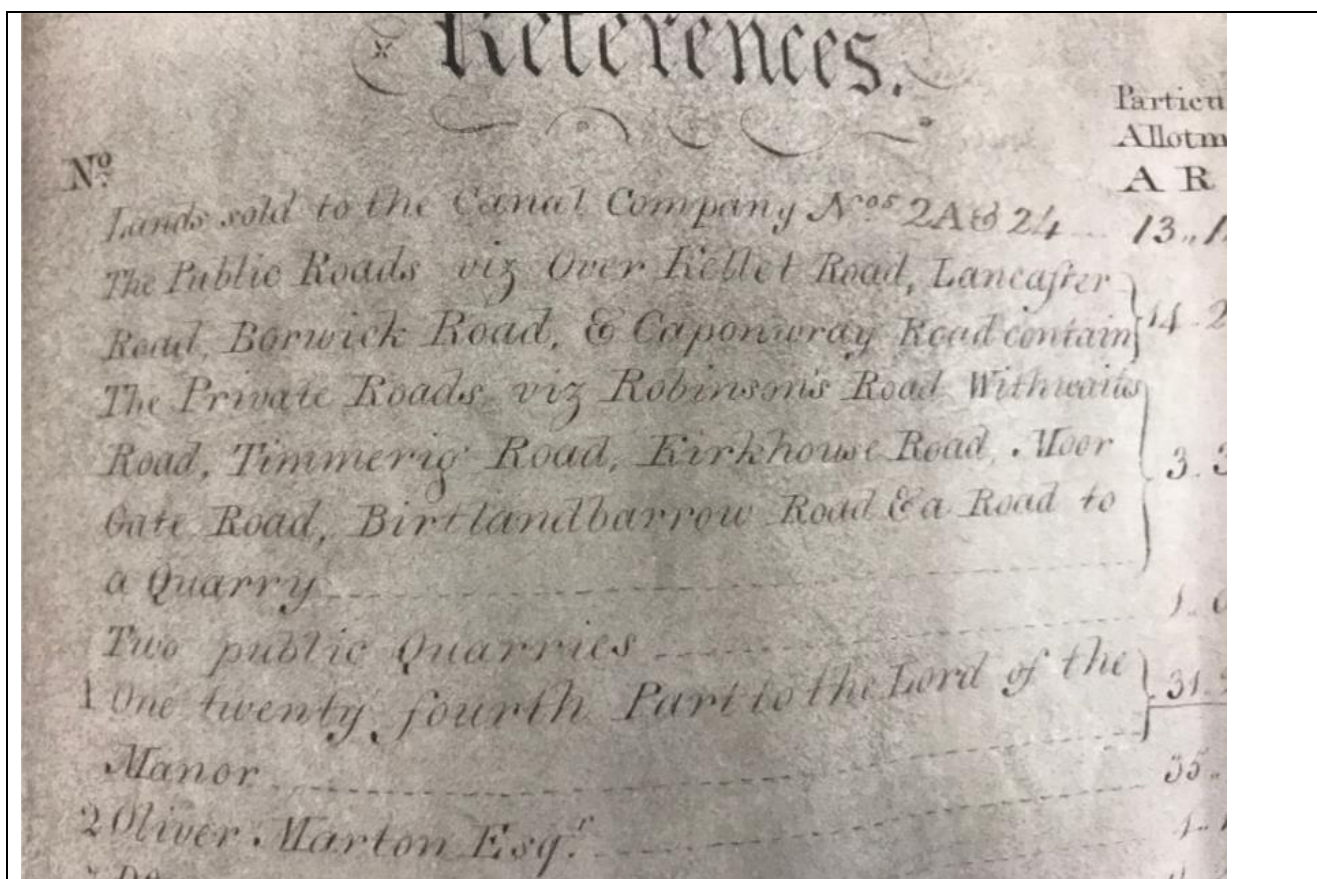 References.
Particu
Allotm
Nº A R
Lands sold to the Canal Company Nos 2A & 24 13,,1
The Public Roads viz Over Kellet Road, Lancaster
Road, Borwick Road, & Caponwray Road contain 14 - 2
The Private Roads viz Robinson's Road Withwaits
Road, Timmerig Road, Kirkhouse Road, Moor 3 . 3
Gate Road, Birtlandbarrow Road & a Road to
a Quarry
Two public Quarries 1 - 0
1 One twenty fourth Part to the Lord of the 31
Manor 35
2 Oliver Marton Esqr.
Do